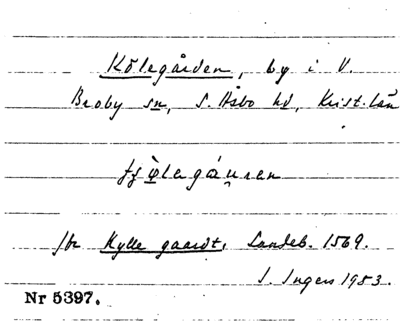 Kölegården, by i V.
Broby sn, S. Åsbo hd, Krist. län
jfr Kylle gaardt. Landeb. 1569.
I. Ingers 1953.
Nr 5397.